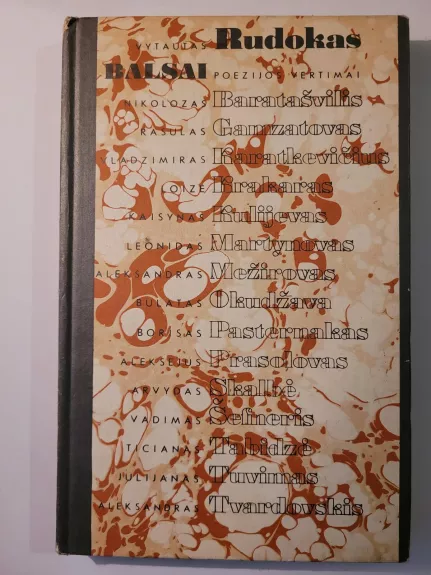 VYTAUTAS Rudokas
BALSAI POEZIJOS VERTIMAI
NIKOLOZAS Baratašvilis
RASULAS Gamzatovas
VLADZIMIRAS Karatkevičius
LOIZĖ Krakaras
KAISYNAS Kulijevas
LEONIDAS Martynovas
ALEKSANDRAS Mežirovas
BULATAS Okudžava
BORISAS Pasternakas
ALEKSEJUS Prasolovas
ARVYDAS Skalbė
VADIMAS Šefneris
TICIANAS Tabidzė
JULIJANAS Tuvimas
ALEKSANDRAS Tvardovskis